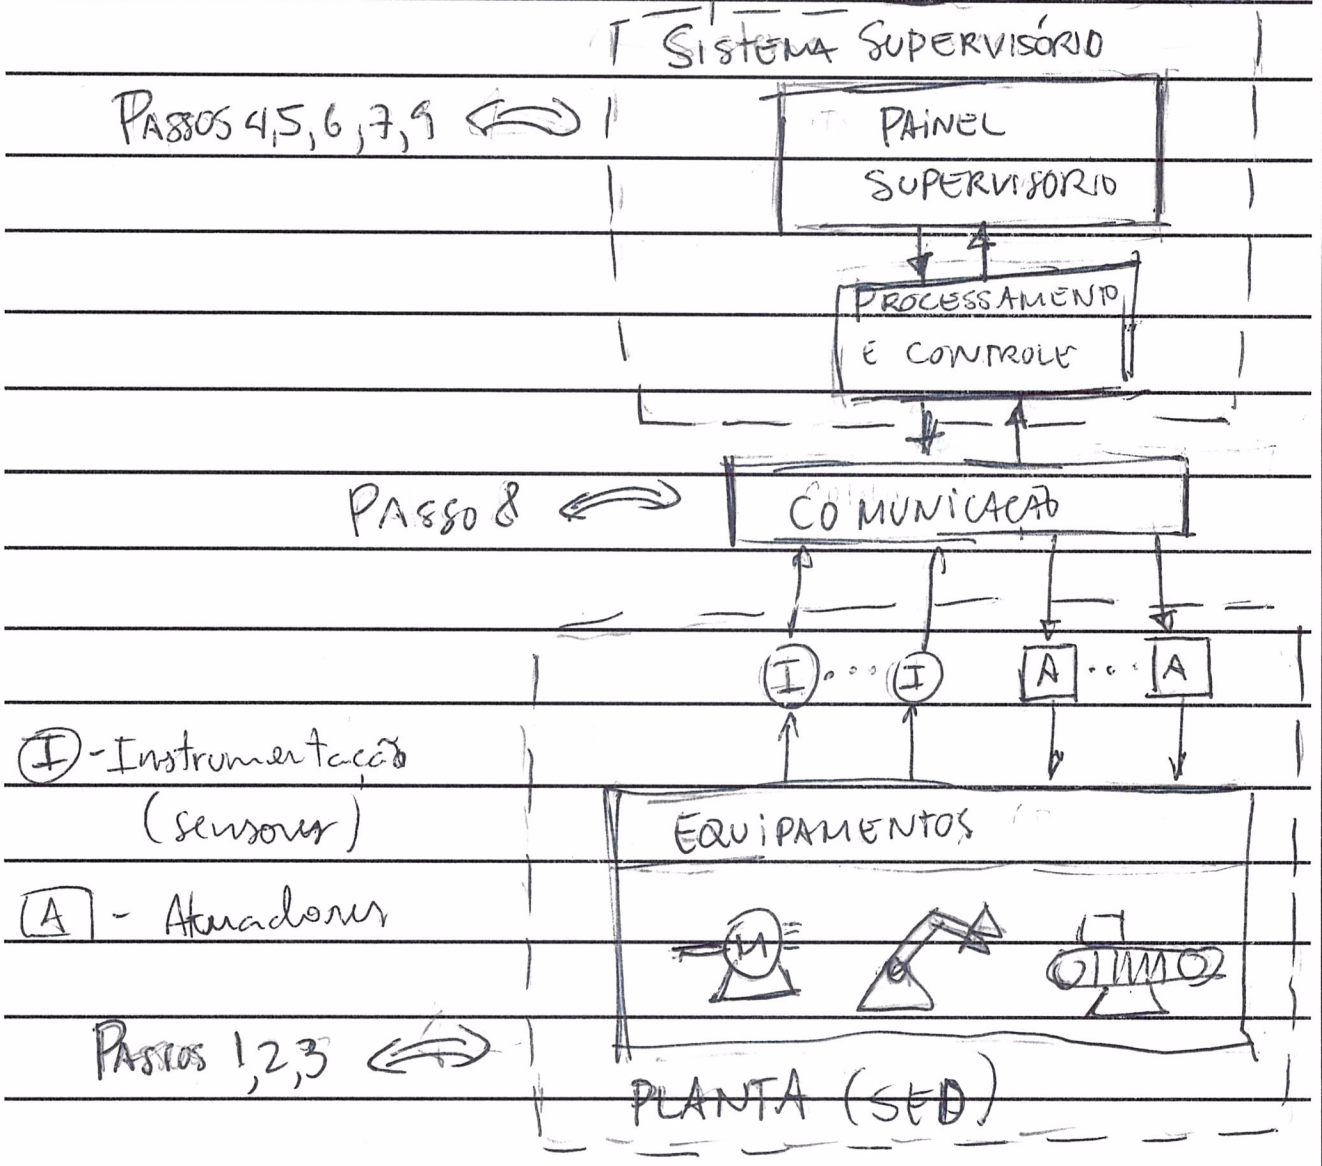 SISTEMA SUPERVISÓRIO
PASSOS 4,5,6,7,9
PAINEL
SUPERVISÓRIO
PROCESSAMENTO
E CONTROLE
PASSO 8
COMUNICAÇÃO
I ... I A ... A
I - Instrumentação
(sensores)
EQUIPAMENTOS
A - Atuadores
M
PASSOS 1,2,3
PLANTA (SED)